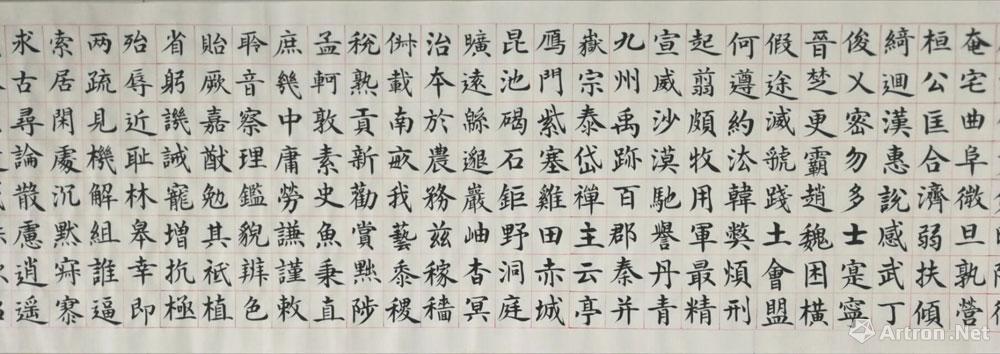 奄宅曲阜微旦孰營
桓公匡合濟弱扶傾
綺迴漢惠說感武丁
俊乂密勿多士寔寧
晉楚更霸趙魏困橫
假途滅虢踐土會盟
何遵約法韓獘煩刑
起翦頗牧用軍最精
宣威沙漠馳譽丹青
九州禹跡百郡秦并
嶽宗泰岱禪主云亭
鴈門紫塞雞田赤城
昆池碣石鉅野洞庭
曠遠緜邈巖岫杳冥
治本於農務茲稼穡
俶載南畝我藝黍稷
稅熟貢新勸賞黜陟
孟軻敦素史魚秉直
庶幾中庸勞謙謹敕
聆音察理鑑貌辨色
貽厥嘉猷勉其祗植
省躬譏誡寵增抗極
殆辱近耻林皋幸即
两疏見機解組誰逼
索居閑處沉默寂寥
求古尋論散慮逍遥
Artron.Net